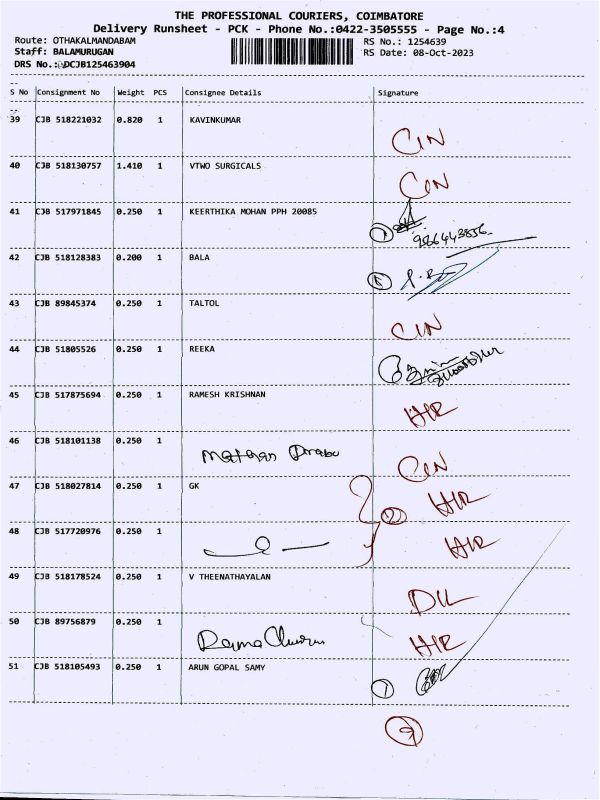 THE PROFESSIONAL COURIERS, COIMBATORE
Delivery Runsheet - PCK - Phone No.:0422-3505555 - Page No.:4
Route: OTHAKALMANDABAM RS No.: 1254639
Staff: BALAMURUGAN RS Date: 08-Oct-2023
DRS No.: DCJB125463904
S No Consignment No Weight PCS Consignee Details Signature
39 CJB 518221032 0.820 1 KAVINKUMAR
CIN
40 CJB 518130757 1.410 1 VTWO SURGICALS
CIN
41 CJB 517971845 0.250 1 KEERTHIKA MOHAN PPH 20085
42 CJB 518128383 0.200 1 BALA
43 CJB 89845374 0.250 1 TALTOL
CIN
44 CJB 51805526 0.250 1 REEKA
45 CJB 517875694 0.250 1 RAMESH KRISHNAN
HIR
46 CJB 518101138 0.250 1
CIN
47 CJB 518027814 0.250 1 GK
HIR
48 CJB 517720976 0.250 1
HIR
49 CJB 518178524 0.250 1 V THEENATHAYALAN
DIL
50 CJB 89756879 0.250 1
HIR
51 CJB 518105493 0.250 1 ARUN GOPAL SAMY